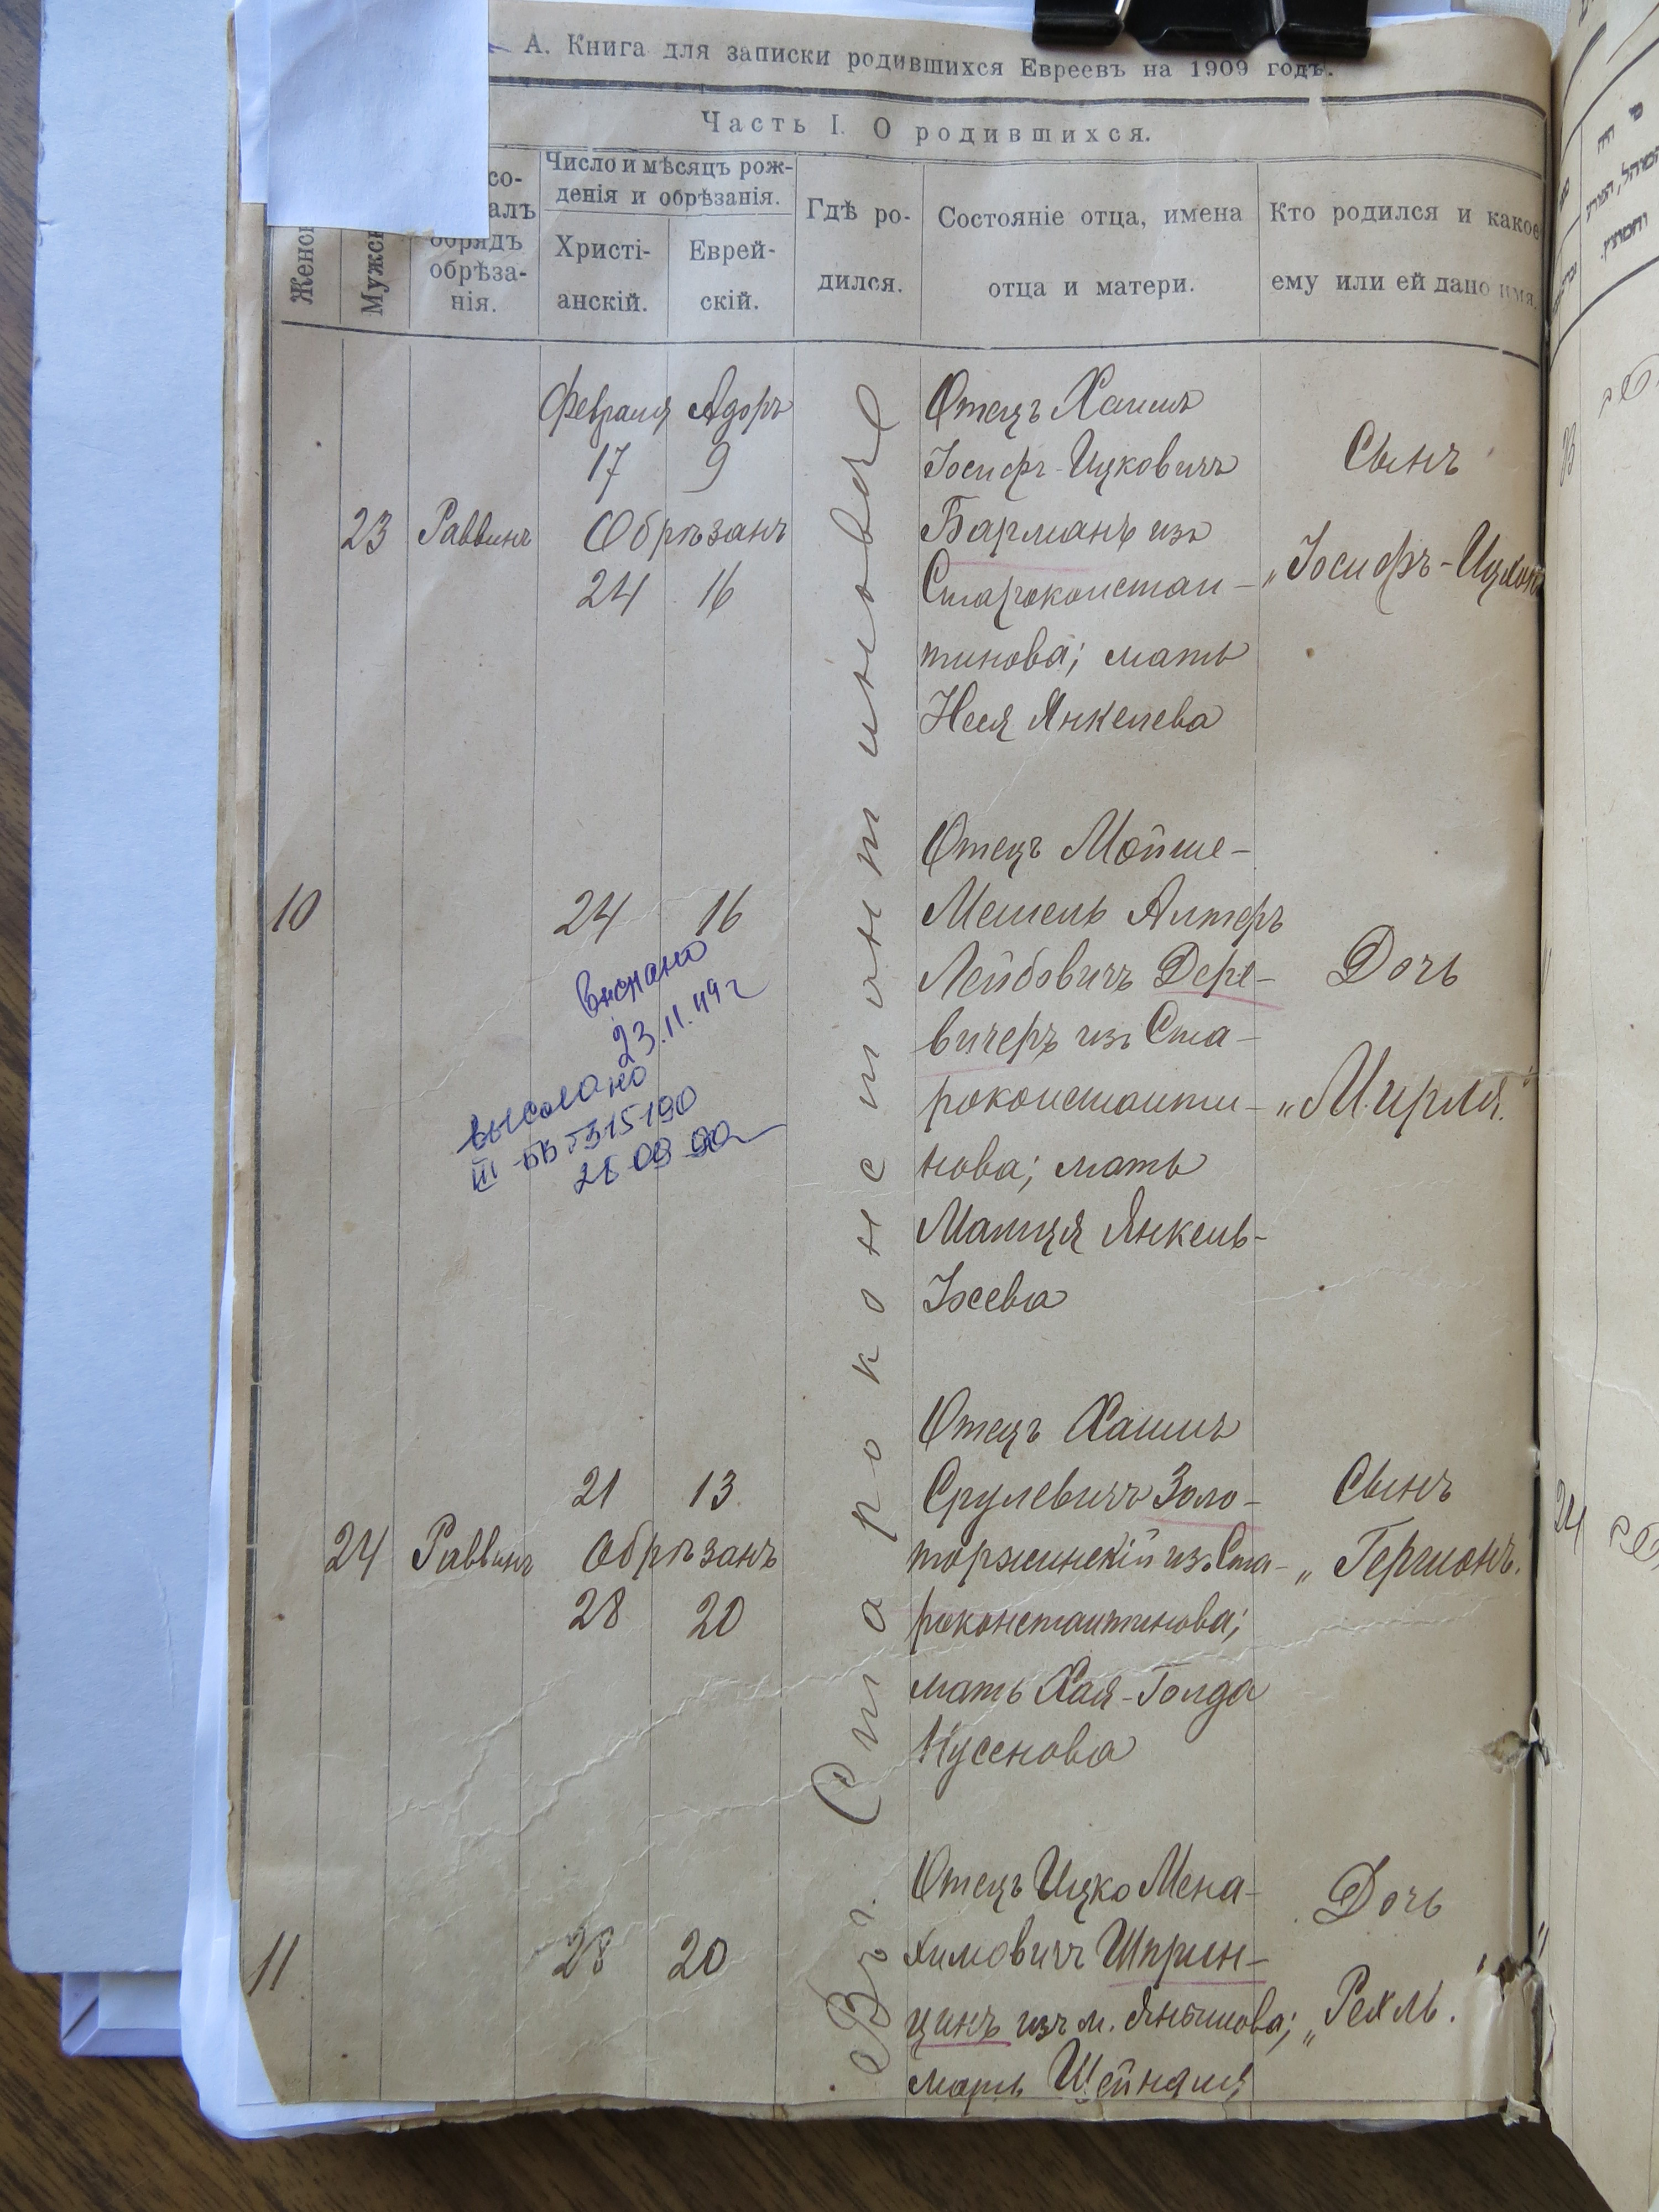 А. Книга для записки родившихся Евреевъ на 1909 годъ.
Часть I. О родившихся.
Женск
Мужск
со-
алъ
обрядъ
обрѣза-
нія.
Число и мѣсяцъ рож-
денія и обрѣзанія.
Христі-
анскій.
Еврей-
скій.
Гдѣ ро-
дился.
Состояніе отца, имена
отца и матери.
Кто родился и какое
ему или ей дано имя.
Въ г. Староконстантиновѣ
23
Раввинъ
Февраля Адоръ
17 9
Обрѣзанъ
24 16
Отецъ Хаимъ
Іосифъ-Ицковичъ
Барманъ изъ
Староконстан-
тинова; мать
Янкелева
Сынъ
„Іосифъ-
10
24 16
23.11.49 г
выслано
Отецъ Мойше-
Мешель Алтеръ
Лейбовичъ Дере-
вичеръ изъ Ста-
роконстанти-
нова; мать
Малця Янкель-
Іосева
Дочь
„Мирля."
24
Раввинъ
21 13
Обрѣзанъ
28 20
Отецъ Хаимъ
Срулевичъ Золо-
торжинскій изъ Ста-
роконстантинова;
мать Хая-Голда
Нусенова
Сынъ
„Гершонъ."
11
28 20
Отецъ Ицко Мена-
химовичъ Шприн-
цинъ изъ м.
мать
Дочь
„Рехль."